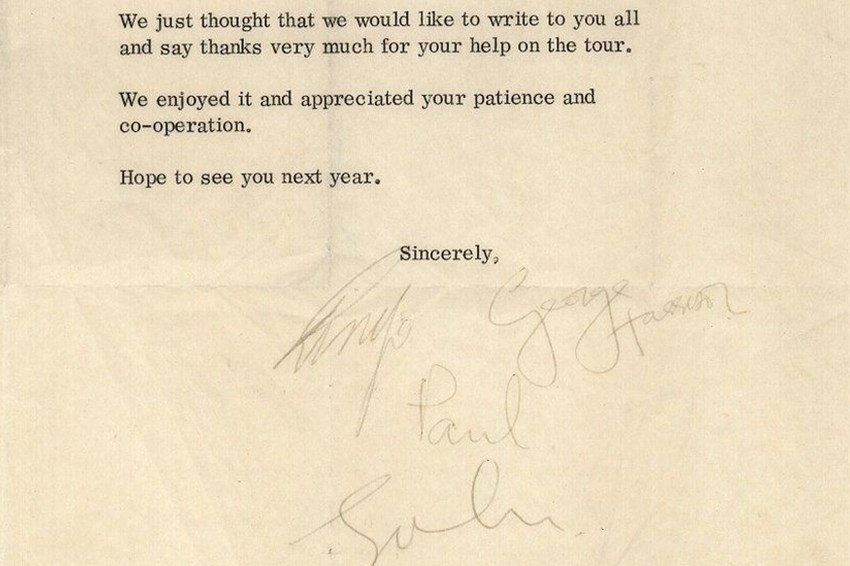 We just thought that we would like to write to you all
and say thanks very much for your help on the tour.
We enjoyed it and appreciated your patience and
co-operation.
Hope to see you next year.
Sincerely,
Ringo George Harrison
Paul
John